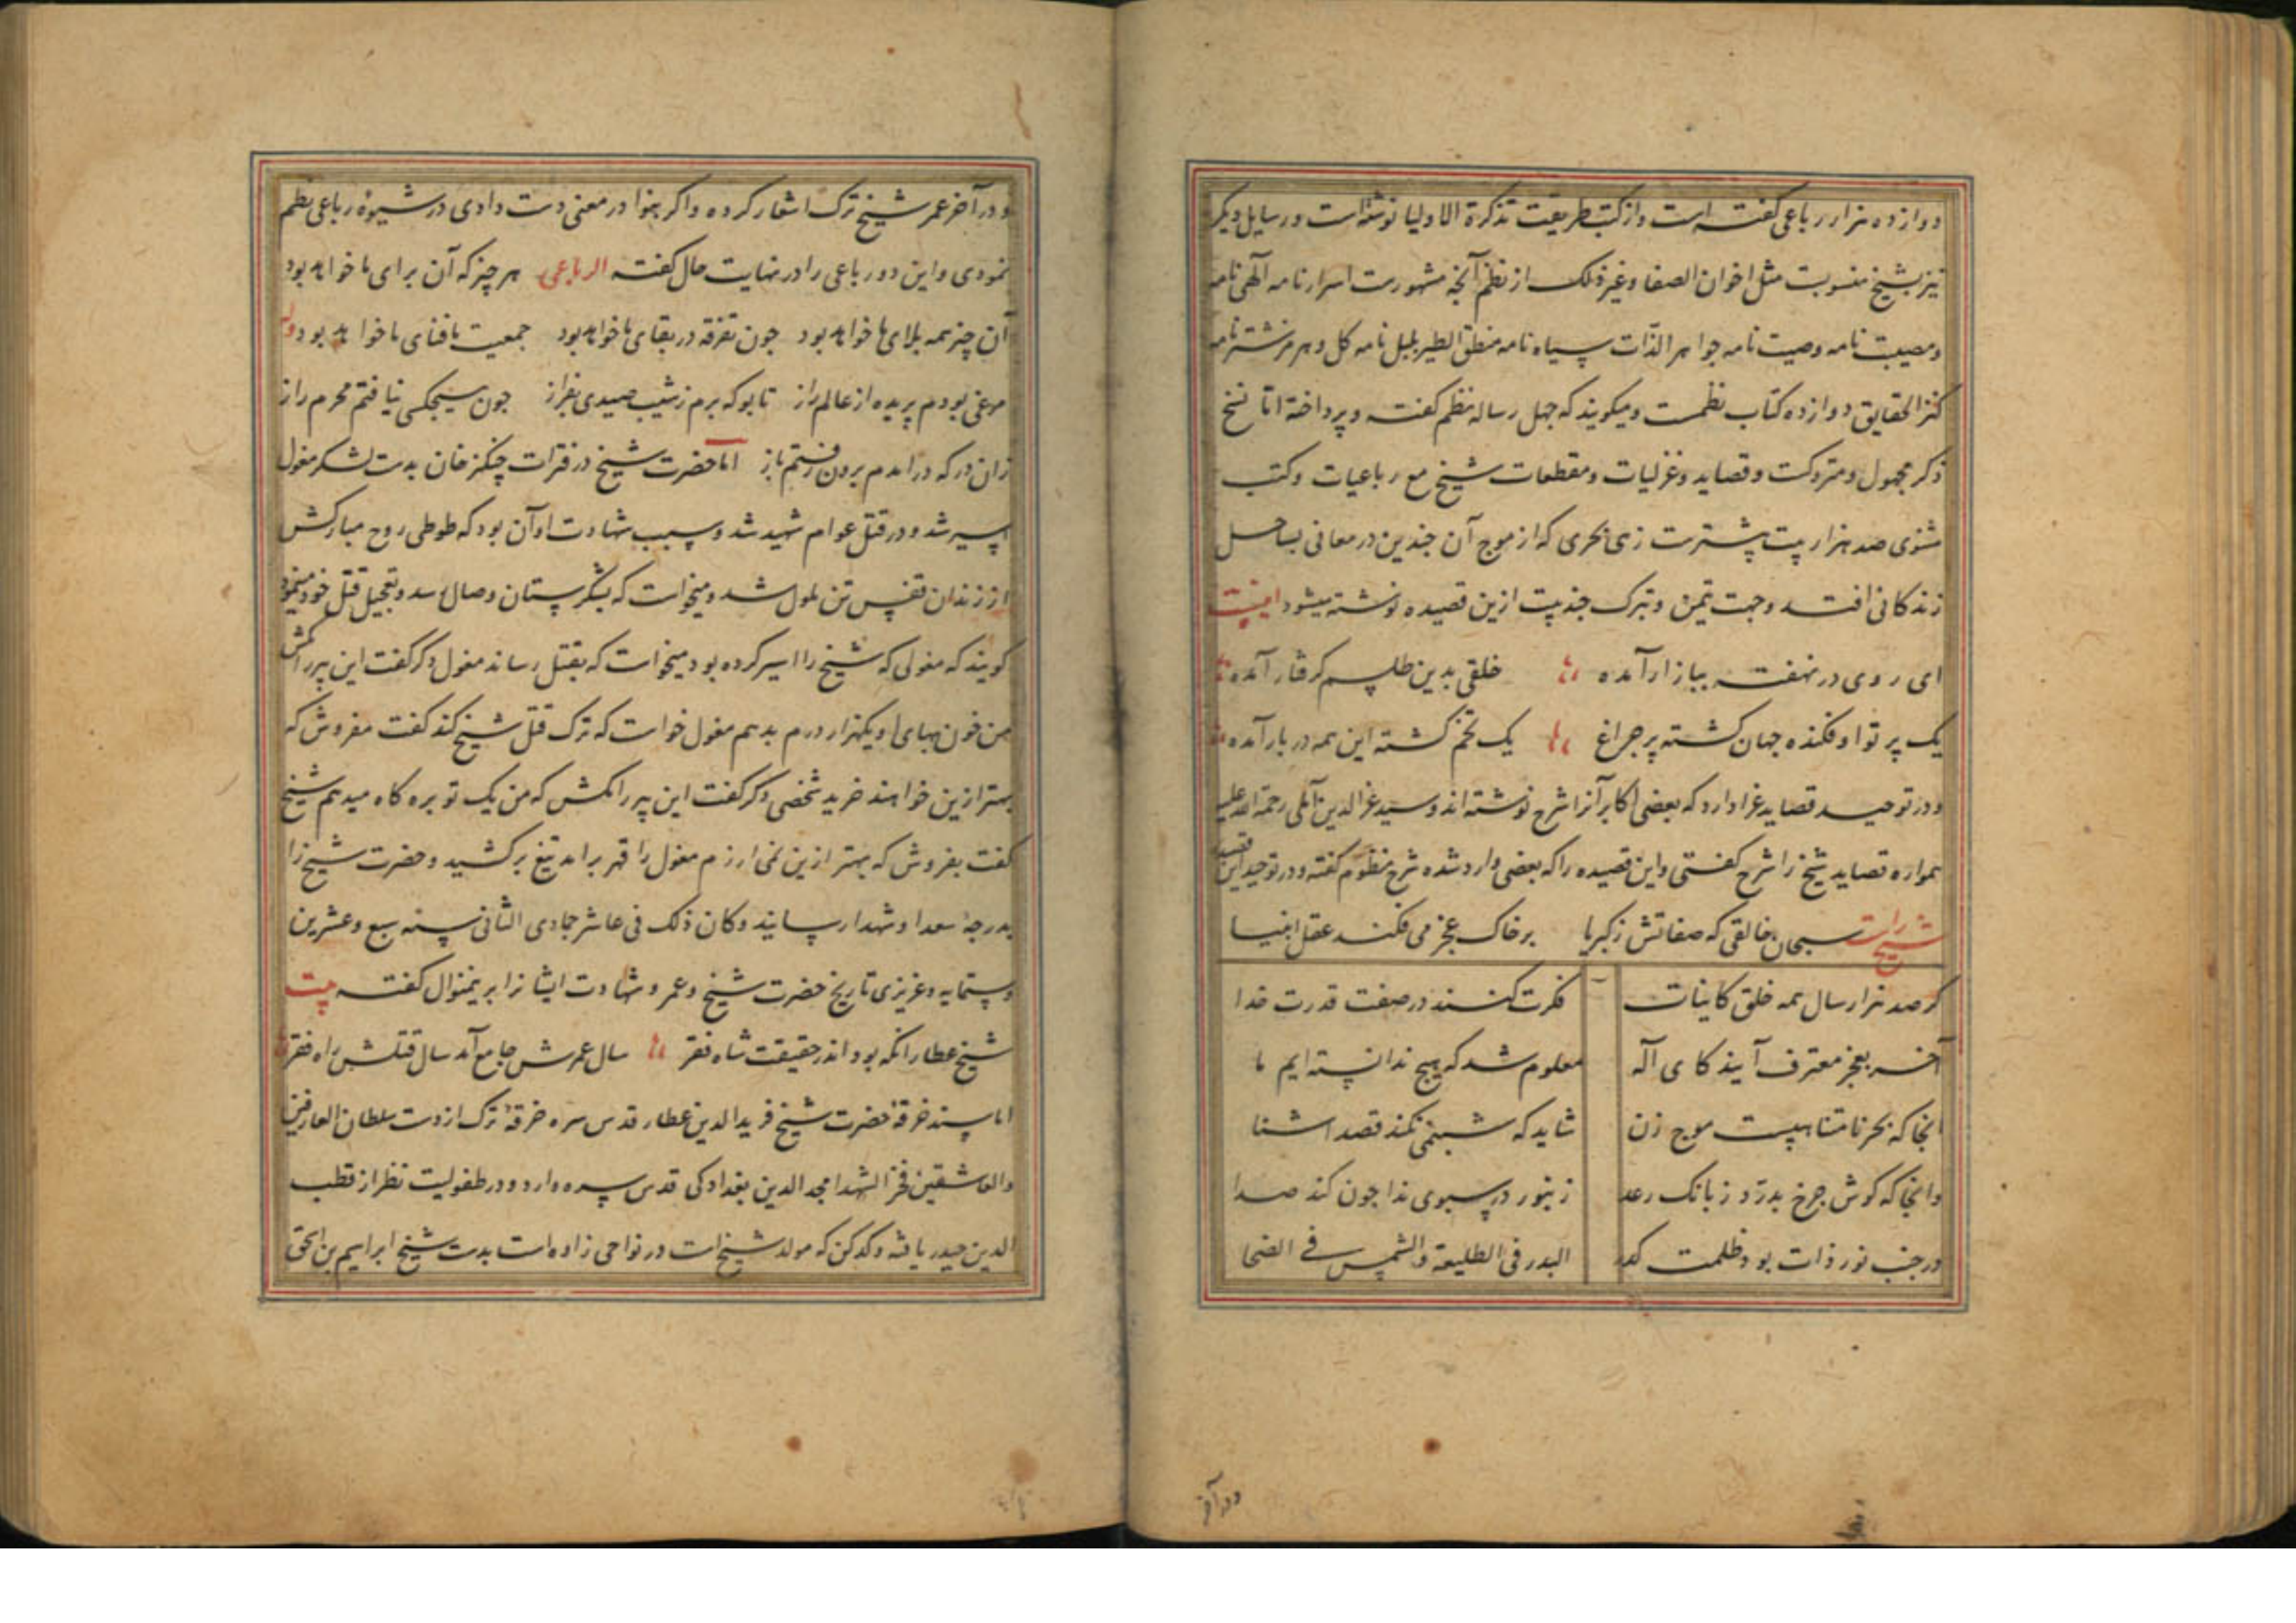 دوازده هزار رباعی کفته است و از کتب طریقت تذکرة الاولیا نوشته است و رسایل دیکر
نیز بشیخ منسوبت مثل اخوان الصفا و غیر ذلک از نظم آنچه مشهورست اسرارنامه آلهی نامه
ومصیبت نامه وصیت نامه جواهر الذّات سیاه نامه منطق الطیر بلبل نامه کل و هرمز شترنامه
کنز الحقایق دوازده کتاب نظمست و میکویند که جهل رساله نظم کفته و پرداخته اما نسخ
دکر مجهول و متروکت و قصاید و غزلیات و مقطعات شیخ مع رباعیات و کتب
مثنوی صد هزار بیت پشترست زهی بحری که از موج آن جندین در معانی بساحل
زندکانی افتد و جهت تیمن و تبرک جند بیت ازین قصیده نوشته میشود اینست
ای روی در نهفته ببازار آمده خلقی بدین طلسم کرفتار آمده
یک پرتو اوفکنده جهان کشته پر جراغ یک تخم کشته این همه در بار آمده
و در توحید قصاید غرا دارد که بعضی اکابر آنرا شرح نوشته اند و سید عزالدین آملی رحمة الله علیه
همواره قصاید شیخ را شرح کفتی و این قصیده را که بعضی وارد شده شرح منظوم کفته و در توحید این قصیده
شیخ راست سبحان خالقی که صفاتش زکبریا برخاک عجز می فکند عقل انبیا
کر صد هزار سال همه خلق کاینات فکرت کنند در صفت قدرت خدا
آخر بعجز معترف آیند کای اله معلوم شد که هیچ ندانسته ایم ما
انجا که بحر نامتناهیست موج زن شاید که شبنمی نکند قصد اشنا
وانجا که کوش جرخ بدرّد ز بانک رعد زنبور در سبوی ندا جون کند صدا
در جنب نور ذات بود ظلمت کدر البدر فی الطلیعة والشمس فی الضحا
ودر آخر
ودر آخر عمر شیخ ترک اشعار کرده و اکر هنوا در معنی دست دادی در شیوهٔ رباعی نظم
نمودی و این دو رباعی را در نهایت حال کفته الرباعی هر چیز که آن برای ما خواهد بود
آن چیز همه بلای ما خواهد بود جون تفرقه در بقای ما خواهد بود جمعیت ما فنای ما خواهد بود وله
مرغی بودم پریده از عالم راز تا بو که برم ز شیب صیدی بفراز جون هیچکسی نیافتم محرم راز
زان در که درامدم برون رفتم باز اما حضرت شیخ در فترات چنکز خان بدست لشکر مغول
اسیر شد و در قتل عوام شهید شد و سبب شهادت او آن بود که طوطی روح مبارکش
از زندان قفس تن ملول شد و میخواست که بشکرستان وصال رسد و تعجیل قتل خود مینمود
کویند که مغولی که شیخ را اسیر کرده بود میخواست که بقتل رساند مغول دکر کفت این پیر را مکش
من خون بهای او یکهزار درم بدهم مغول خواست که ترک قتل شیخ کند کفت مفروش که
بهتر ازین خواهند خرید شخصی دکر کفت این پیر را مکش که من یک توبره کاه میدهم شیخ
کفت بفروش که بهتر ازین نمی ارزم مغول را قهر برامد تیغ برکشید و حضرت شیخ را
بدرجهٔ سعدا و شهدا رسانید و کان ذلک فی عاشر جمادی الثانی سنه سبع و عشرین
و ستمایه و عزیزی تاریخ حضرت شیخ و عمر و شهادت ایشانرا برینمنوال کفته بیت
شیخ عطار انکه بود اندر حقیقت شاه فقر سال عمرش جامع آمد سال قتلش راه فقر
اما سند خرقهٔ حضرت شیخ فرید الدین عطار قدس سره خرقهٔ ترک از دست سلطان العارفین
والعاشقین فخر الشهدا مجد الدین بغدادکی قدس سره دارد و در طفولیت نظر از قطب
الدین حیدر یافته و کدکن که مولد شیخ است در نواحی زاوه است بدست شیخ ابراهیم بن اسحق